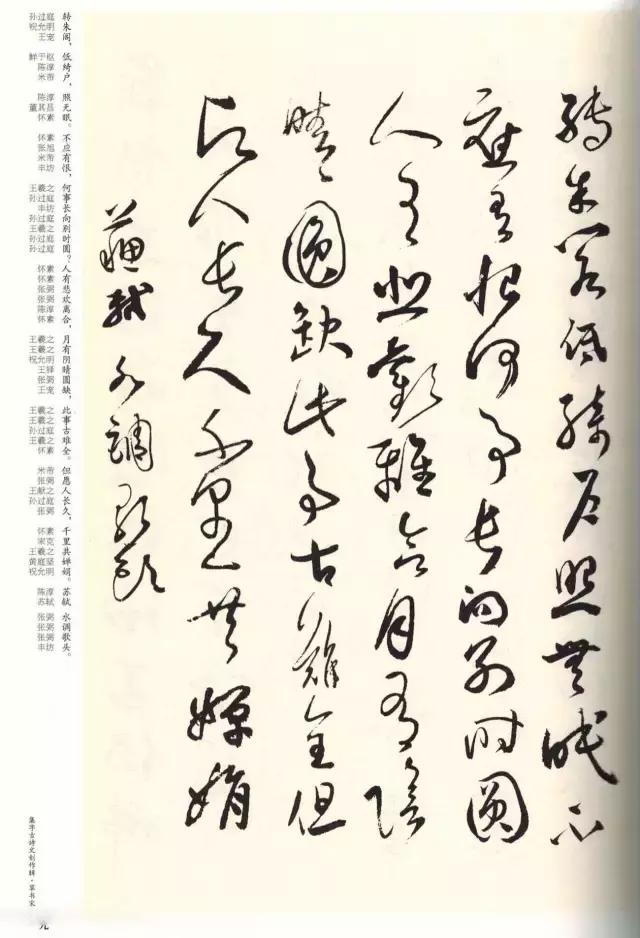 轉朱閣低綺戶照無眠不
應有恨何事長向別時圓
人有悲歡離合月有陰
晴圓缺此事古難全但
願人長久千里共嬋娟
蘇軾水調歌頭
转朱阁，低绮户，照无眠。不应有恨，何事长向别时圆？人有悲欢离合，月有阴晴圆缺，此事古难全。但愿人长久，千里共婵娟。苏轼 水调歌头。
孙过庭
祝允明
王宠
鲜于枢
陈淳
米芾
陈淳
董其昌
怀素
怀素
张旭
米芾
丰坊
王羲之
孙过庭
丰坊
孙过庭
王羲之
孙过庭
孙过庭
怀素
怀素
张弼
张弼
陈淳
怀素
王羲之
王羲之
祝允明
王铎
张弼
王宠
王羲之
王羲之
孙过庭
王羲之
怀素
米芾
张弼
王献之
孙过庭
张弼
怀素
宋克
王羲之
黄庭坚
祝允明
陈淳
苏轼
张弼
张弼
张弼
丰坊
集字古诗文创作辑·草书宋
九